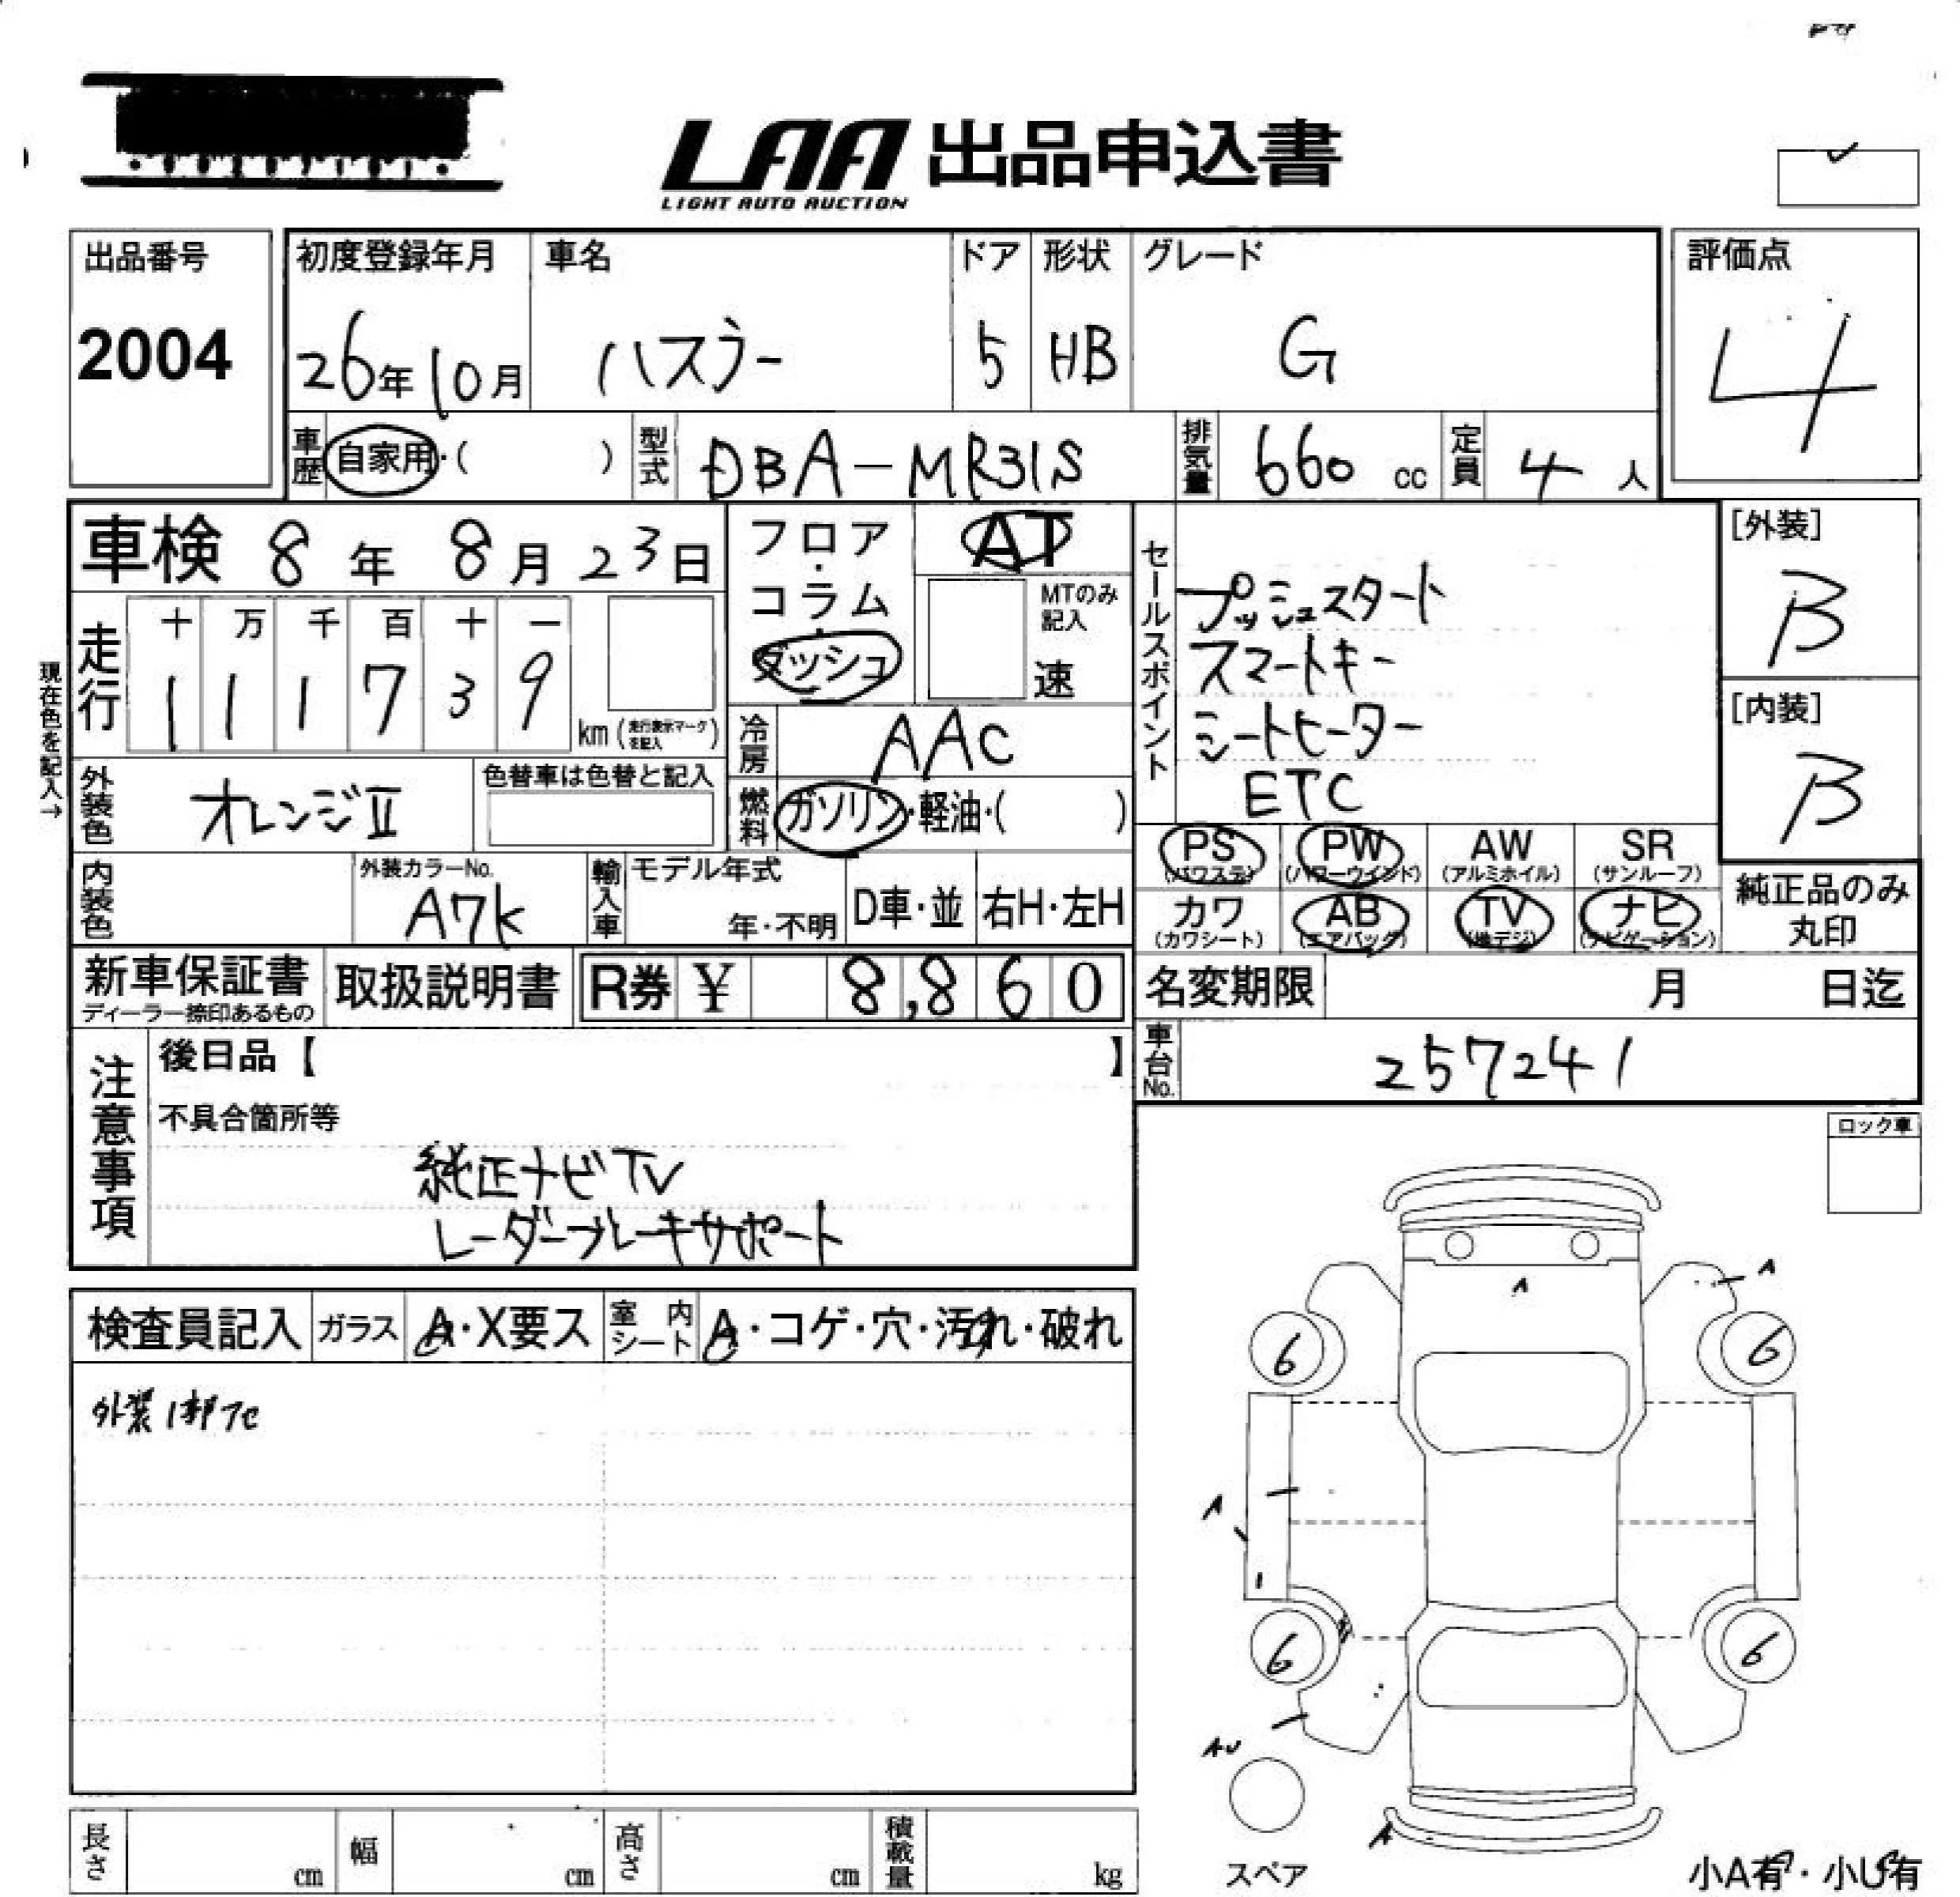 LAA 出品申込書
LIGHT AUTO AUCTION
出品番号
2004
初度登録年月
26年10月
車名
ハスラー
ドア
5
形状
HB
グレード
G
評価点
4
車歴 自家用・( )
型式 DBA-MR31S
排気量 660 cc
定員 4 人
車検 8年 8月 23日
現在色を記入→
走行
十 万 千 百 十 一
1 1 1 7 3 9
km(走行表示マークを記入)
フロア・コラム・ダッシュ
AT
MTのみ記入
速
冷房 AAC
燃料 ガソリン・軽油・( )
外装色 オレンジⅡ
色替車は色替と記入
内装色
外装カラーNo.
A7K
輸入車
モデル年式
年・不明
D車・並
右H・左H
セールスポイント
プッシュスタート
スマートキー
シートヒーター
ETC
[外装]
B
[内装]
B
PS (パワステ)
PW (パワーウインド)
AW (アルミホイル)
SR (サンルーフ)
カワ (カワシート)
AB (エアバッグ)
TV (地デジ)
ナビ (ナビゲーション)
純正品のみ
丸印
新車保証書
ディーラー捺印あるもの
取扱説明書
R券 ¥ 8,860
名変期限 月 日迄
車台No. 257241
注意事項
後日品【 】
不具合箇所等
純正ナビTV
レーダーブレーキサポート
ロック車
検査員記入
ガラス A・X要ス
室内シート A・コゲ・穴・汚れ・破れ
外装1部
A
A
6
6
A
6
6
AU
A
スペア
小A有・小U有
長さ cm
幅 cm
高さ cm
積載量 kg